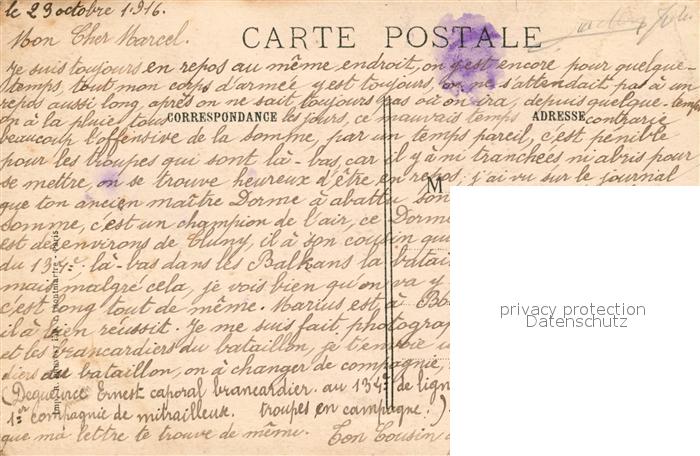 le 23 octobre 1916.
Mon Cher Marcel.
CARTE POSTALE
Je suis toujours en repos au même endroit, on y est encore pour quelque-
temps, tout mon corps d'armée y est toujours, on ne s'attendait pas à un
repos aussi long, après on ne sait toujours pas où on ira, depuis quelque-temps
on à la pluie tous les jours, ce mauvais temps contrarie
CORRESPONDANCE
ADRESSE
beaucoup l'offensive de la somme, par un temps pareil, c'est pénible
pour les troupes qui sont là-bas, car il y à ni tranchées ni abris pour
se mettre, on se trouve heureux d'être en repos, j'ai vu sur le journal
M
que ton ancien maître Dorme à abattu son
somme, c'est un champion de l'air, ce Dorme
est des environs de Cluny, il à son cousin qui
du 134e: là-bas dans les Balkans la batai
mais malgré cela, je vois bien qu'on va y
c'est long tout de même. Marius est à
il à bien réussit. Je me suis fait photograp
et les brancardiers du bataillon, je t'envoie
diers du bataillon, on à changer de compagnie,
(Degueurce Ernest caporal brancardier. au 134e de lign
1er compagnie de mitrailleuse. troupes en campagne.)
que ma lettre te trouve de même. Ton Cousin
privacy protection
Datenschutz